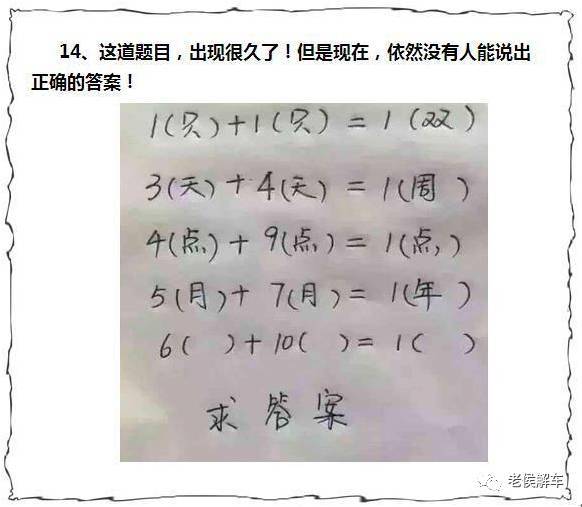 14、这道题目，出现很久了！但是现在，依然没有人能说出
正确的答案！
1(只)+1(只)=1(双)
3(天)+4(天)=1(周)
4(点)+9(点)=1(点)
5(月)+7(月)=1(年)
6( )+10( )=1( )
求答案
老侯解车